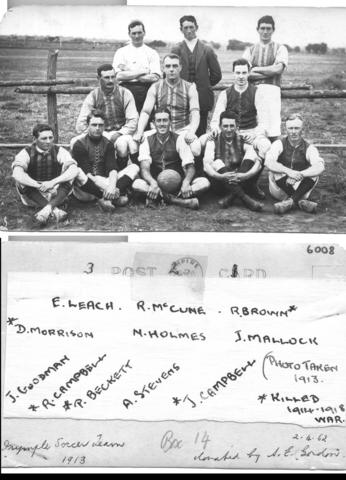 6008
3 2 1
POST CARD
EMPIRE
E. LEACH. R. McCUNE. R. BROWN*
*D. MORRISON N. HOLMES J. MALLOCK
J. GOODMAN
*R. CAMPBELL
*P. BECKETT
A. STEVENS
*J. CAMPBELL
(PHOTO TAKEN
1913.
* KILLED
1914-1918
WAR.
Gympie Soccer Team
1913
Box 14
2-4-62
donated by A. E. Gordon